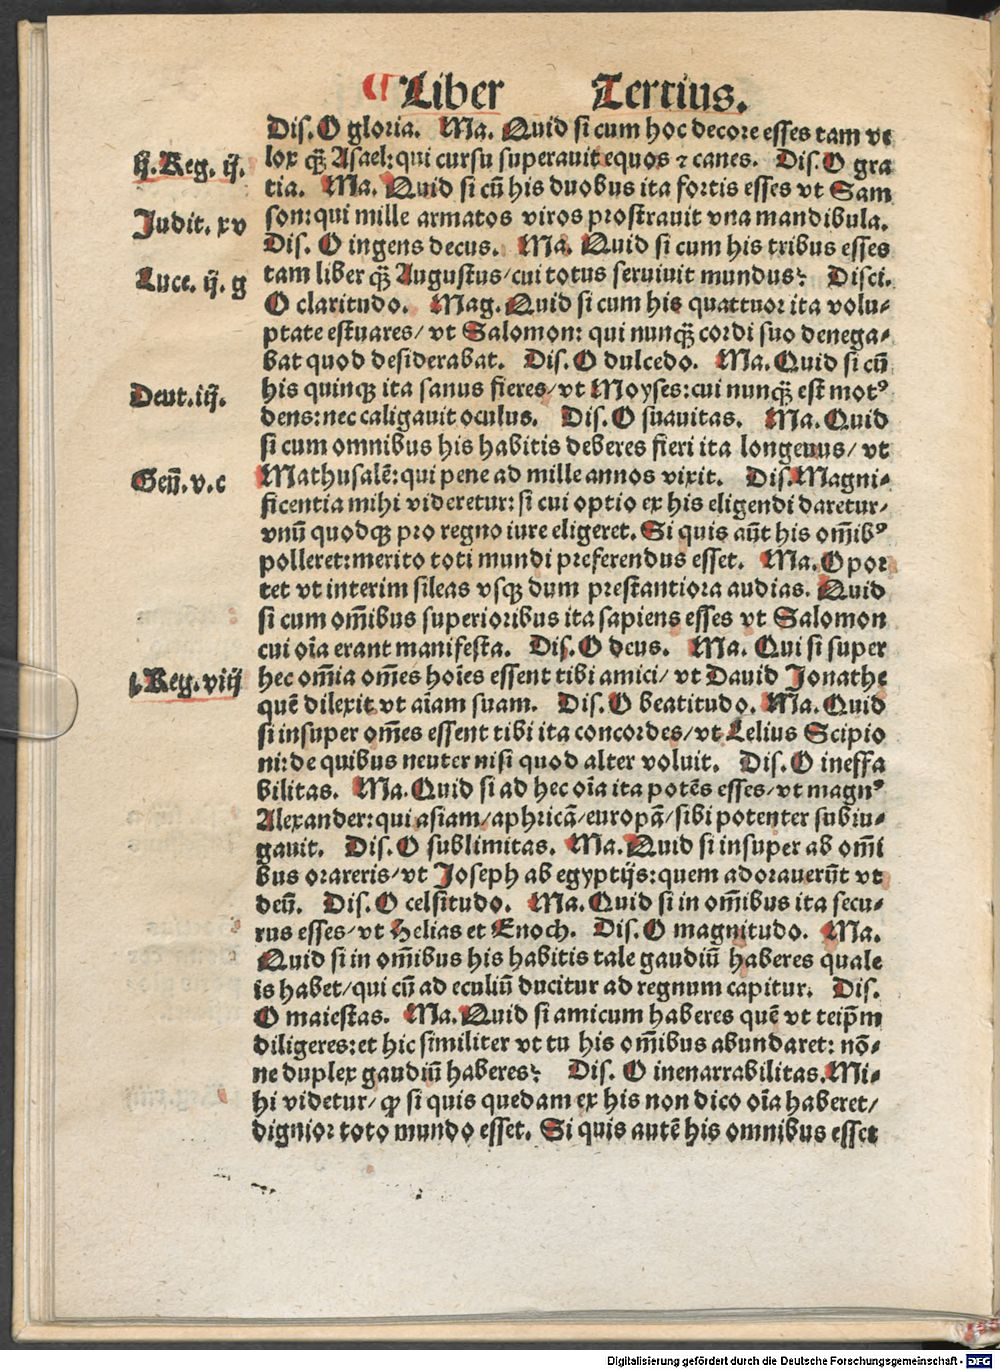 ¶ Liber Tertius.
Dis. O gloria. Ma. Quid si cum hoc decore esses tam ve
ij. Reg. ij.
lox qͣꝫ Asael: qui cursu superauit equos ⁊ canes. Dis. O gra
tia. Ma. Quid si cū his duobus ita fortis esses vt Sam
Judit. xv
son: qui mille armatos viros prostrauit vna mandibula.
Dis. O ingens decus. Ma. Quid si cum his tribus esses
Luce. ij. g
tam liber qͣꝫ Augustus/ cui totus seruiuit mundus? Disci.
O claritudo. Mag. Quid si cum his quattuor ita volu-
ptate estuares/ vt Salomon: qui nunqͣꝫ cordi suo denega-
bat quod desiderabat. Dis. O dulcedo. Ma. Quid si cū
Deut. iij.
his quinqꝫ ita sanus fieres/ vt Moyses: cui nunqͣꝫ est motꝰ
dens: nec caligauit oculus. Dis. O suauitas. Ma. Quid
si cum omnibus his habitis deberes fieri ita longeuus/ vt
Geñ. v. c
Mathusalē: qui pene ad mille annos vixit. Dis. Magni-
ficentia mihi videretur: si cui optio ex his eligendi daretur/
vnū quodqꝫ pro regno iure eligeret. Si quis aūt his om̄ibꝰ
polleret: merito toti mundi preferendus esset. Ma. Opor
tet vt interim sileas vsqꝫ dum prestantiora audias. Quid
si cum om̄ibus superioribus ita sapiens esses vt Salomon
cui oīa erant manifesta. Dis. O deus. Ma. Qui si super
j. Reg. viij
hec om̄ia om̄es hoīes essent tibi amici/ vt Dauid Jonathe
quē dilexit vt aīam suam. Dis. O beatitudo. Ma. Quid
si insuper om̄es essent tibi ita concordes/ vt Lelius Scipio
ni: de quibus neuter nisi quod alter voluit. Dis. O ineffa
bilitas. Ma. Quid si ad hec oīa ita potēs esses/ vt magnꝰ
Alexander: qui asiam/ aphricā/ europā/ sibi potenter subiu-
gauit. Dis. O sublimitas. Ma. Quid si insuper ab om̄i
bus orareris/ vt Joseph ab egyptijs: quem adorauerūt vt
deū. Dis. O celsitudo. Ma. Quid si in om̄ibus ita secu-
rus esses/ vt Helias et Enoch. Dis. O magnitudo. Ma.
Quid si in om̄ibus his habitis tale gaudiū haberes quale
is habet/ qui cū ad eculiū ducitur ad regnum capitur. Dis.
O maiestas. Ma. Quid si amicum haberes quē vt teip̄m
diligeres: et hic similiter vt tu his om̄ibus abundaret: nō-
ne duplex gaudiū haberes? Dis. O inenarrabilitas. Mi-
hi videtur/ ꝙ si quis quedam ex his non dico oīa haberet/
dignior toto mundo esset. Si quis autē his omnibus esset
Digitalisierung gefördert durch die Deutsche Forschungsgemeinschaft - DFG